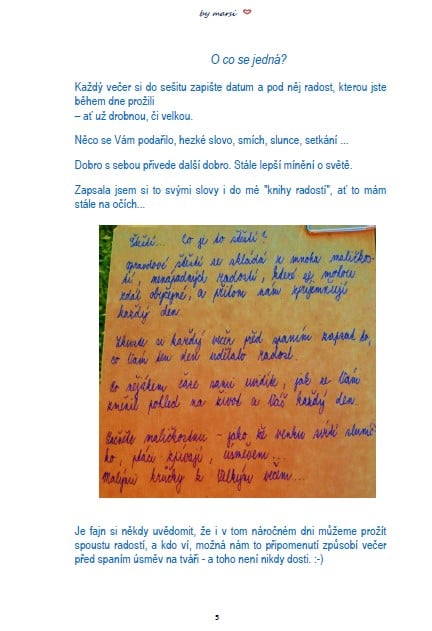 by marsi
O co se jedná?
Každý večer si do sešitu zapište datum a pod něj radost, kterou jste
během dne prožili
– ať už drobnou, či velkou.
Něco se Vám podařilo, hezké slovo, smích, slunce, setkání ...
Dobro s sebou přivede další dobro. Stále lepší mínění o světě.
Zapsala jsem si to svými slovy i do mé "knihy radostí", ať to mám
stále na očích...
Štěstí... Co je to štěstí?
Opravdové štěstí se skládá z mnoha maličkos-
tí, nenápadných radostí, které se mohou
zdát obyčejné, a přitom nám zpříjemňují
každý den.
Zkuste si každý večer před spaním zapsat to,
co Vám ten den udělalo radost.
Po nějakém čase sami uvidíte, jak se Vám
změnil pohled na život a Váš každý den.
Začněte maličkostmi - jako že venku svítí sluníč-
ko, ptáci zpívají, úsměvem...
Malými krůčky k velkým věcem...
Je fajn si někdy uvědomit, že i v tom náročném dni můžeme prožít
spoustu radostí, a kdo ví, možná nám to připomenutí způsobí večer
před spaním úsměv na tváři - a toho není nikdy dosti. :-)
3